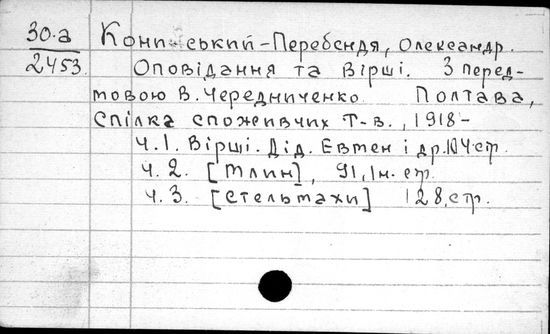 30.а Кони-ський-Перебендя, Олександр.
2453. Оповідання та Вірші. З перед-
мовою В. Чередниченко Полтава,
Спілка споживчих Т-в., 1918-
ч. 1. Вірші. Дід. Евтен і др. 104 стр.
ч. 2. [Млин], 91, Iн. стр.
ч. 3. [Стельмахи] 128, стр.